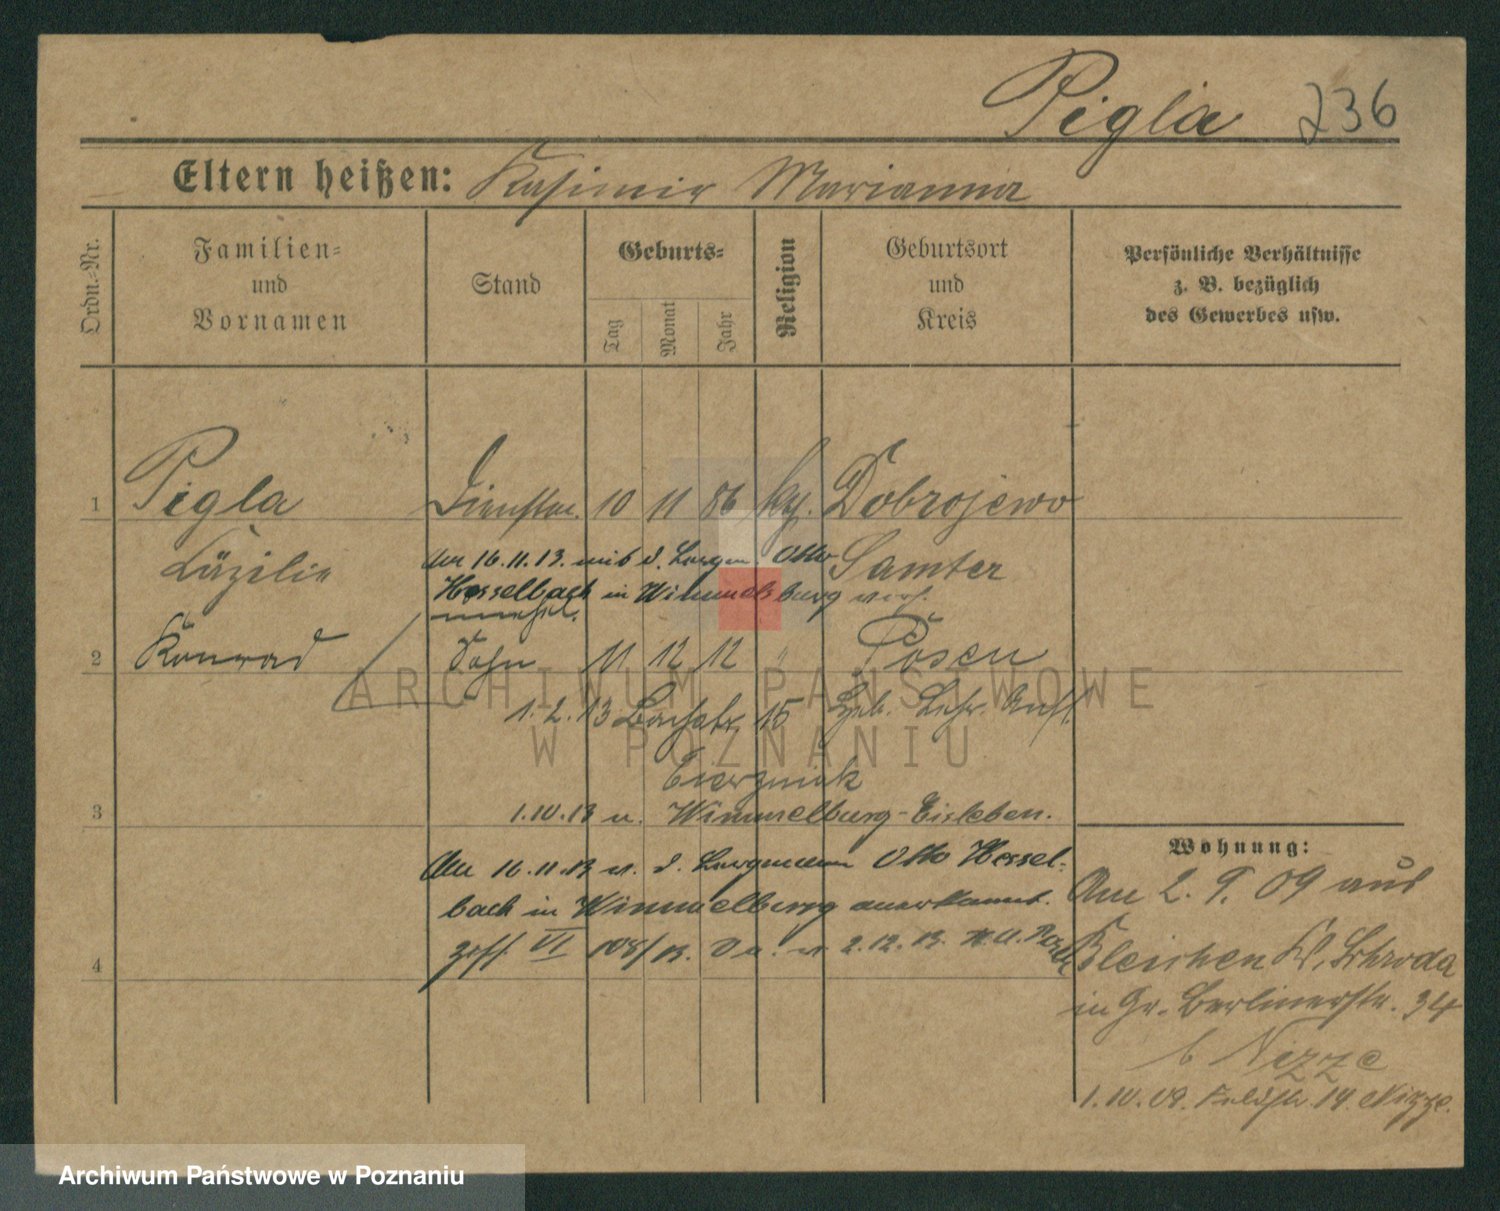 Pigla 236
Eltern heißen: Kasimir Marianna
Ordn.-Nr.
Familien-
und
Vornamen
Stand
Geburts-
Tag
Monat
Jahr
Religion
Geburtsort
und
Kreis
Persönliche Verhältnisse
z. B. bezüglich
des Gewerbes usw.
1 Pigla Dienstm. 10 11 86 kath. Dobrojewo
Cäzilie Samter
Am 16.11.13. mit d. Otto
Hesselbach in Wimmelburg verh.
2 Konrad Sohn 11 12 12 " Posen
unehel.
1.2.13 15
1.10.13 n. Wimmelburg-Eisleben.
3
Am 16.11.13 v. d. Otto Hessel-
bach in Wimmelburg anerkannt.
VI 2.12.13.
4
Wohnung:
Am 2.9.09 aus
Bleichen Kr. Schroda
in Gr. Berlinerstr. 34
b Nizze
1.10.09. Feldstr. 14 Nizze.
ARCHIWUM PAŃSTWOWE
W POZNANIU
Archiwum Państwowe w Poznaniu